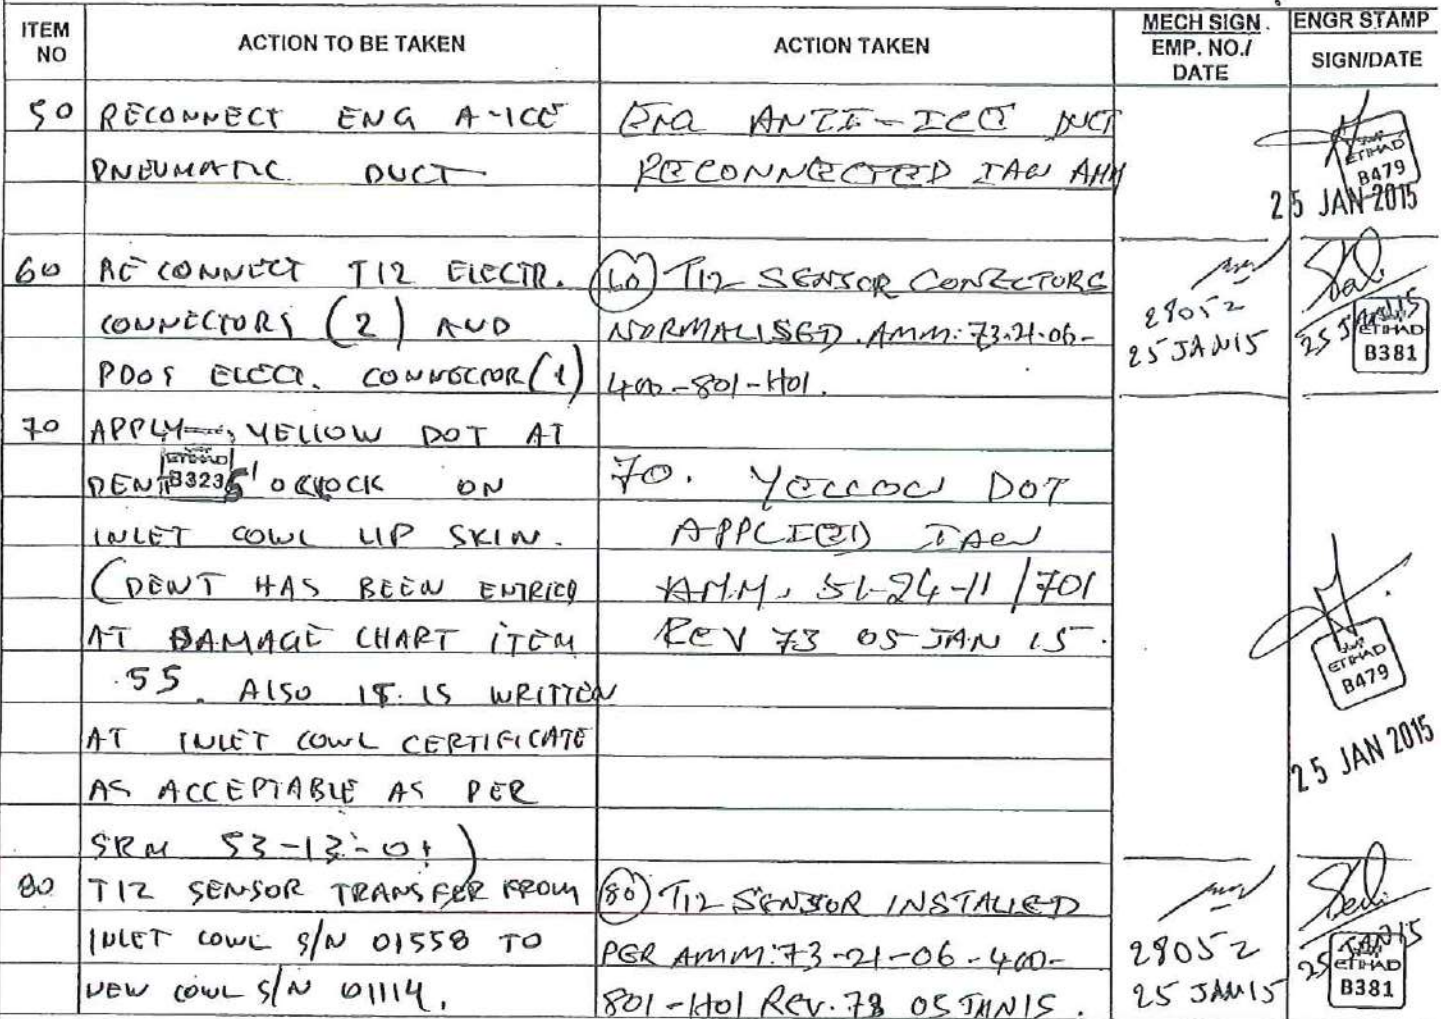 ITEM NO
ACTION TO BE TAKEN
ACTION TAKEN
MECH SIGN. EMP. NO./ DATE
ENGR STAMP SIGN/DATE
50
RECONNECT ENG A-ICE
PNEUMATIC DUCT
ENG ANTI-ICE DUCT
RECONNECTED IAW AMM
ETIHAD
B479
25 JAN 2015
60
RECONNECT T12 ELECTR.
CONNECTORS (2) AND
PDOS ELECT. CONNECTOR (1)
60 T12 SENSOR CONECTORS
NORMALISED. AMM: 73-21-06-
400-801-H01.
28052
25 JAN15
25 JAN15
ETIHAD
B381
70
APPLY YELLOW DOT AT
DENT 5' OCLOCK ON
ETIHAD
B323
INLET COWL LIP SKIN.
(DENT HAS BEEN ENTRIED
AT DAMAGE CHART ITEM
55. ALSO IT IS WRITTEN
AT INLET COWL CERTIFICATE
AS ACCEPTABLE AS PER
SRM 53-13-01)
70. YELLOW DOT
APPLIED IAW
AMM. 51-24-11/701
REV 73 05 JAN 15.
ETIHAD
B479
25 JAN 2015
80
T12 SENSOR TRANSFER FROM
INLET COWL S/N 01558 TO
NEW COWL S/N 01114.
80 T12 SENSOR INSTALLED
PER AMM: 73-21-06-400-
801-H01 REV. 73 05 JAN15.
28052
25 JAN15
25 JAN15
ETIHAD
B381